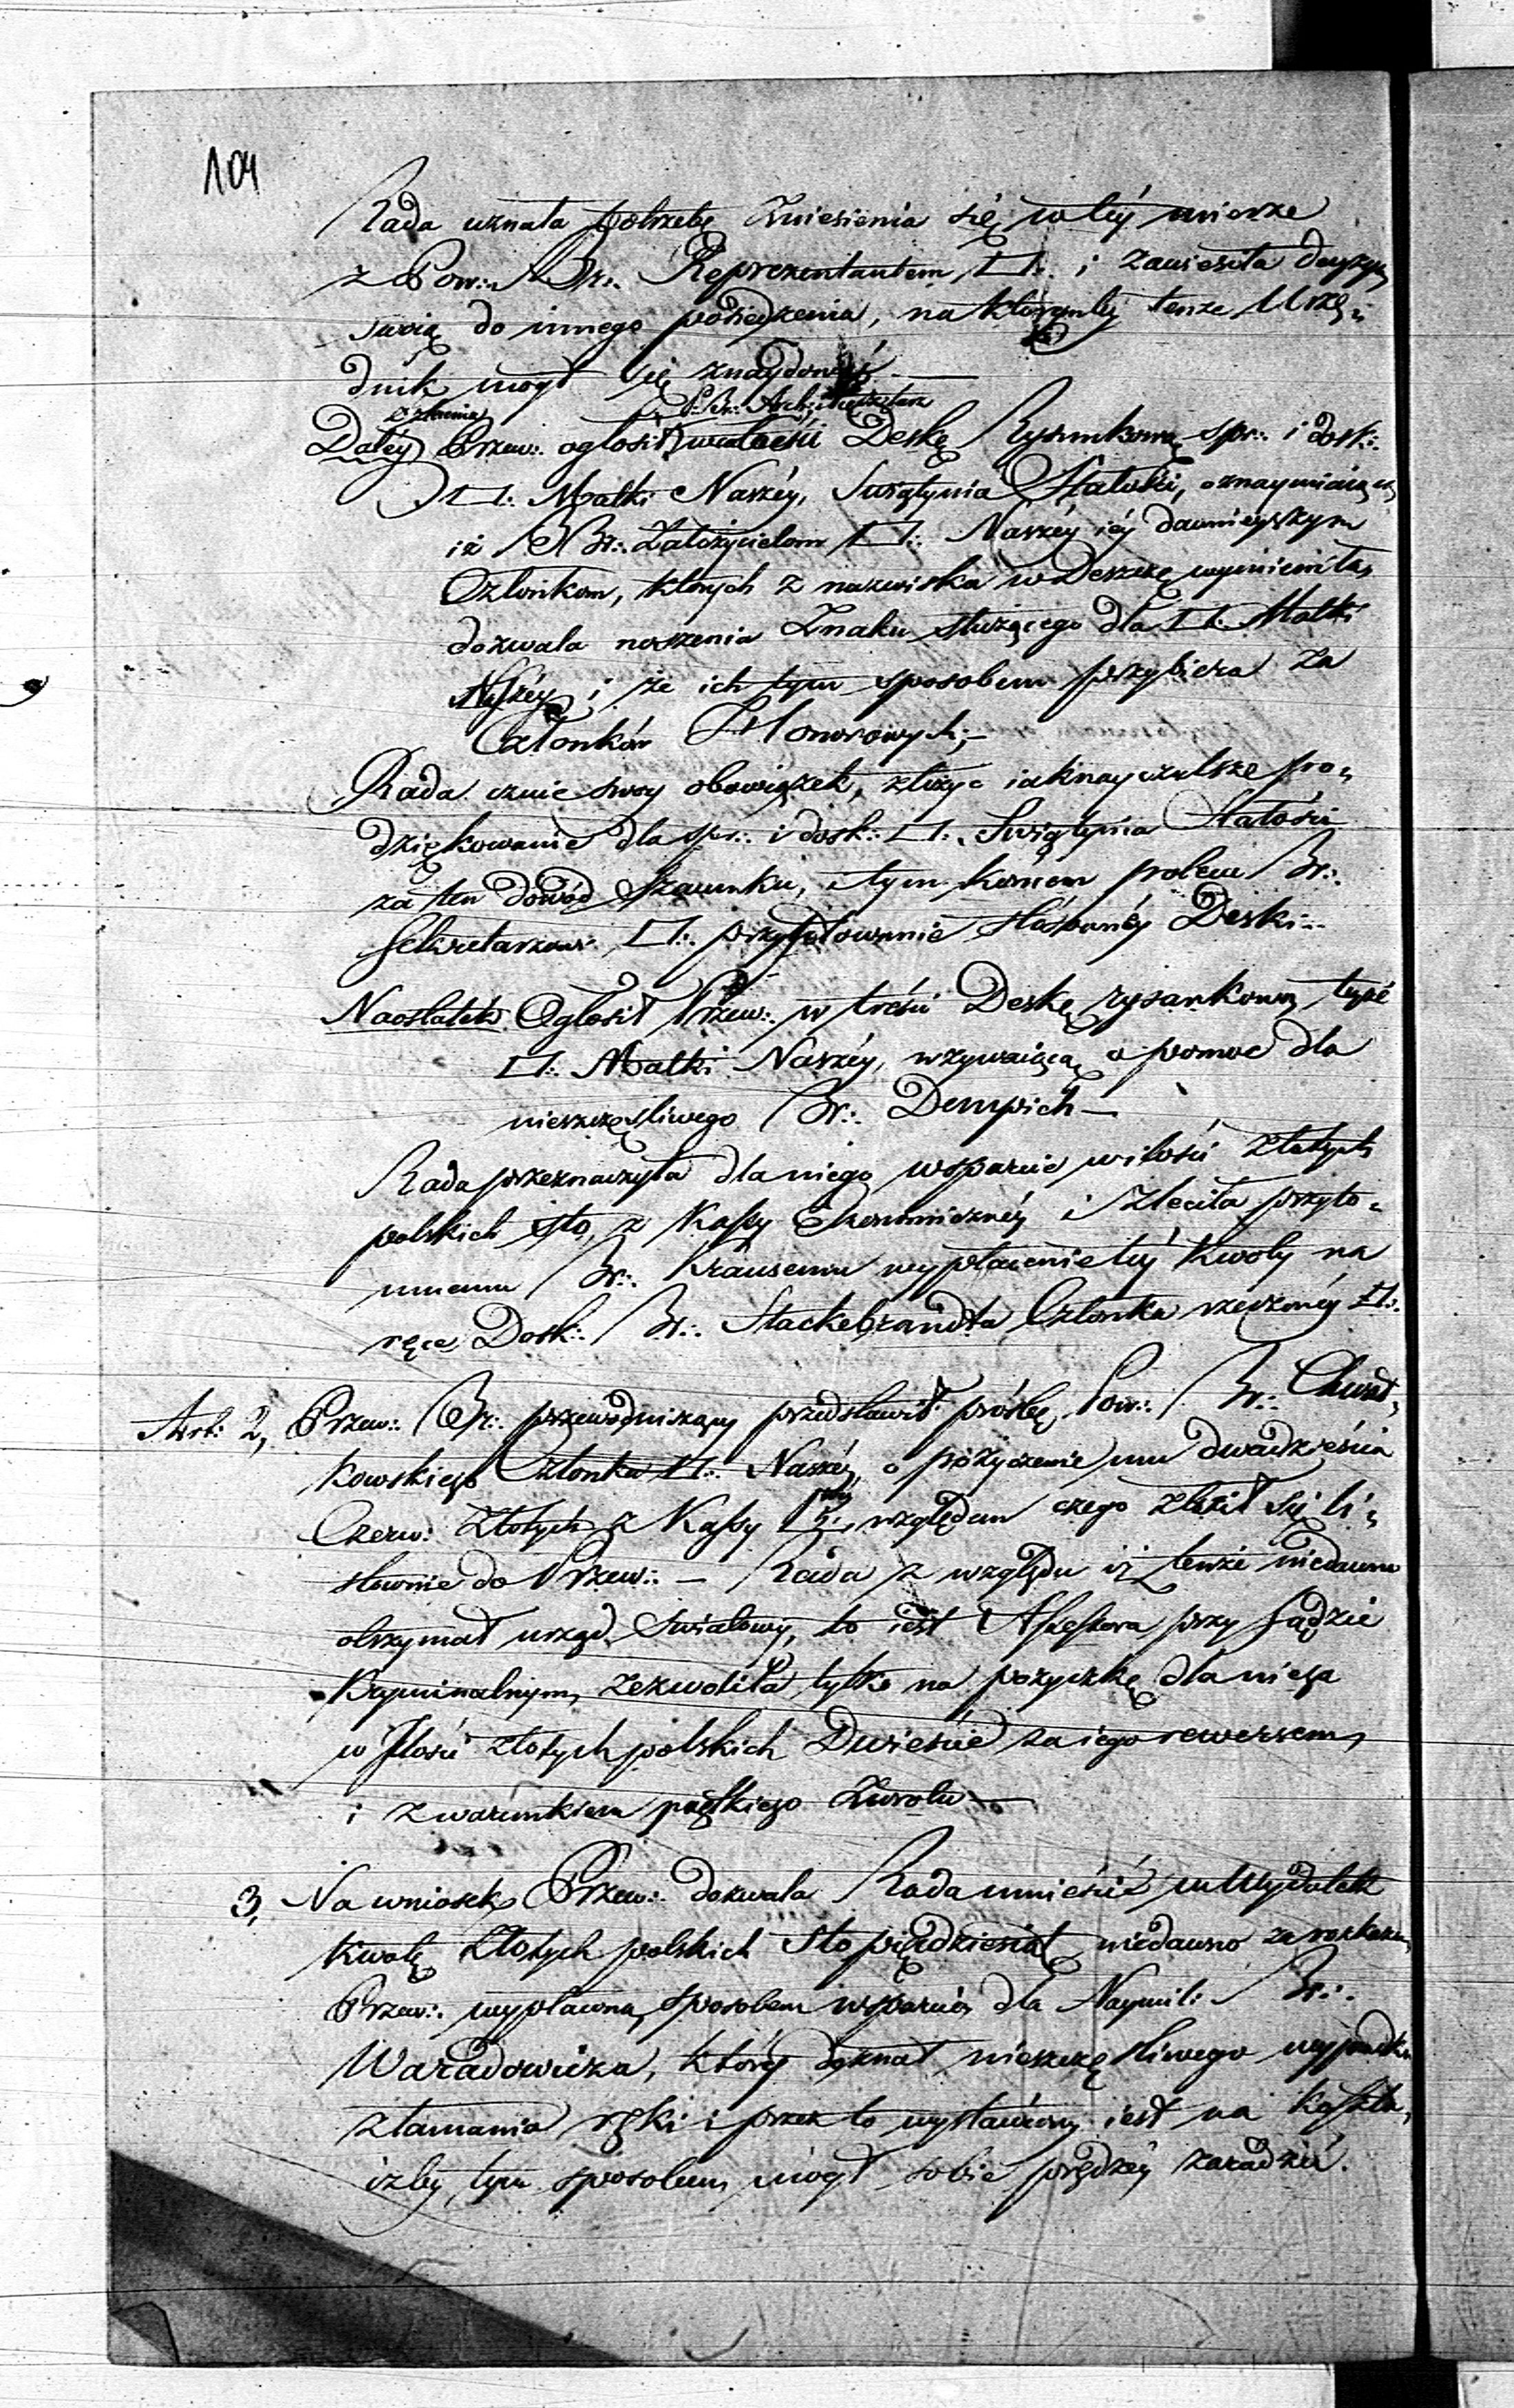 104
Rada uznała potrzebę Zniesienia się w téy mierze
z Pow:. Br:. Reprezentantem □:. i zawiesiła decyzyą
swoią do innego posiedzenia, na którymby tenże Urzę=
dnik mógł się znaydować —
P:. Br:. Archi
Daléy Przew:. ogłosił w treści Deskę Rysunkową spr:. i dosk:.
□:. Matki Naszéy, Swiątynia Stałości, oznaymiaiącą,
iż BBr:. Założycielom □:. Naszéy iéy dawnieyszym
Członkom, których z nazwiska w Deszczce wymieniła,
dozwala noszenia Znaku służącego dla □:. Matki
Naszéy i że ich tym sposobem przybiera za
Członków Honorowych; —
Rada czuie swoy obowiązek, złożyć iaknayczulsze po=
dziękowanie dla spr:. i dosk:. □:. Swiątynia Stałości
za ten dowód Szacunku, i tym końcem poleca Br:.
Sekretarzowi □:. przygotowanie stosownéy Deski:..
Naostatek Ogłosił Przew:. w treści Deskę rysunkową teyże
□:. Matki Naszéy, wzywaiącą o pomoc dla
nieszczęśliwego Br:. Dempich —
Rada przeznaczyła dla niego wsparcie w ilości Złotych
polskich sto, z Kassy Ekonomicznéy i zleciła przyto=
mnemu Br:. Krausemu wypłacenie téy Kwoty na
ręce Dosk:. Br:. Stackebrandta Członka rzeczonéy □:.
Art: 2, Przew:. Br:. przewodniczący przedstawił prośbę Pow:. Br:. Chwał=
kowskiego Członka □:. Naszéy, o pożyczenie mu dwadzieścia
Czerw: Złotych z Kassy względem czego zgłosił się li=
stownie do Przew:. — Rada z względu iż tenże niedawno
otrzymał urząd Swiatowy, to iest Assessora przy Sądzie
Kryminalnym, zezwoliła tylko na pożyczkę dla niego
w Ilości złotych polskich Dwieście za iego rewersem,
i z warunkiem prędkiego Zwrotu —
3, Na wniosek Przew:. dozwala Rada umieścić w Wydatek
Kwotę Złotych polskich Sto pięćdziesiąt, niedawno za rozkazem
Przew:. wypłaconą sposobem wsparcia dla Naymil: Br:.
Waradowicza, który doznał nieszczęśliwego wypadku
złamania ręki i przez to wystawiony iest na Koszta,
izby tym sposobem mógł sobie prędzéy zaradzić.